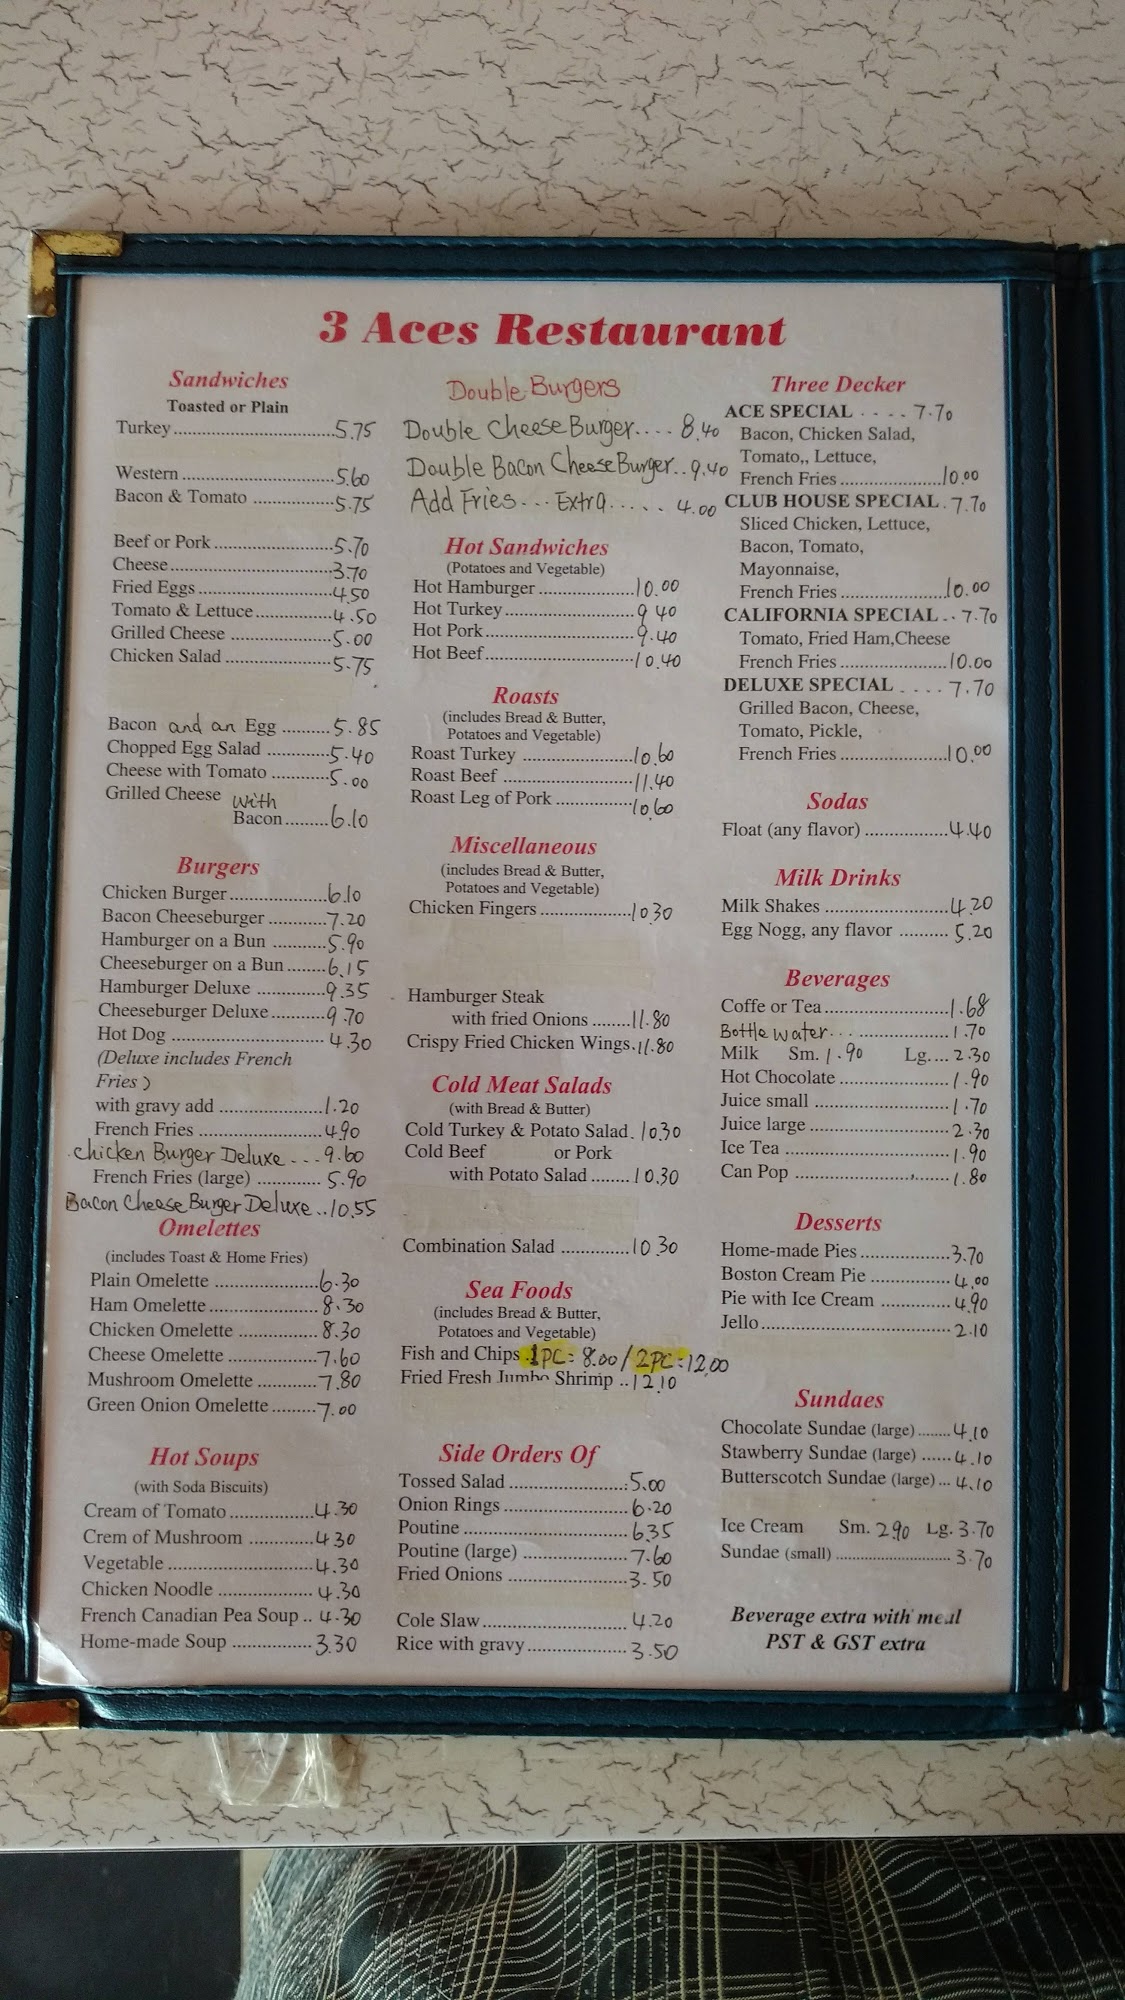 3 Aces Restaurant
Sandwiches
Toasted or Plain
Turkey 5.75
Western 5.60
Bacon & Tomato 5.75
Beef or Pork 5.70
Cheese 3.70
Fried Eggs 4.50
Tomato & Lettuce 4.50
Grilled Cheese 5.00
Chicken Salad 5.75
Bacon and an Egg 5.85
Chopped Egg Salad 5.40
Cheese with Tomato 5.00
Grilled Cheese with
Bacon 6.10
Burgers
Chicken Burger 6.10
Bacon Cheeseburger 7.20
Hamburger on a Bun 5.90
Cheeseburger on a Bun 6.15
Hamburger Deluxe 9.35
Cheeseburger Deluxe 9.70
Hot Dog 4.30
(Deluxe includes French
Fries)
with gravy add 1.20
French Fries 4.90
Chicken Burger Deluxe ... 9.60
French Fries (large) 5.90
Bacon Cheese Burger Deluxe .. 10.55
Omelettes
(includes Toast & Home Fries)
Plain Omelette 6.30
Ham Omelette 8.30
Chicken Omelette 8.30
Cheese Omelette 7.60
Mushroom Omelette 7.80
Green Onion Omelette 7.00
Hot Soups
(with Soda Biscuits)
Cream of Tomato 4.30
Crem of Mushroom 4.30
Vegetable 4.30
Chicken Noodle 4.30
French Canadian Pea Soup .. 4.30
Home-made Soup 3.30
Double Burgers
Double Cheese Burger.... 8.40
Double Bacon Cheese Burger.. 9.40
Add Fries... Extra..... 4.00
Hot Sandwiches
(Potatoes and Vegetable)
Hot Hamburger 10.00
Hot Turkey 9 40
Hot Pork 9.40
Hot Beef 10.40
Roasts
(includes Bread & Butter,
Potatoes and Vegetable)
Roast Turkey 10.60
Roast Beef 11.40
Roast Leg of Pork 10.60
Miscellaneous
(includes Bread & Butter,
Potatoes and Vegetable)
Chicken Fingers 10.30
Hamburger Steak
with fried Onions 11.80
Crispy Fried Chicken Wings. 11.80
Cold Meat Salads
(with Bread & Butter)
Cold Turkey & Potato Salad. 10.30
Cold Beef or Pork
with Potato Salad 10.30
Combination Salad 10 30
Sea Foods
(includes Bread & Butter,
Potatoes and Vegetable)
Fish and Chips 1PC = 8.00 / 2PC = 12.00
Fried Fresh Jumbo Shrimp .. 12.10
Side Orders Of
Tossed Salad 5.00
Onion Rings 6.20
Poutine 6.35
Poutine (large) 7.60
Fried Onions 3.50
Cole Slaw 4.20
Rice with gravy 3.50
Three Decker
ACE SPECIAL .... 7.70
Bacon, Chicken Salad,
Tomato,, Lettuce,
French Fries 10.00
CLUB HOUSE SPECIAL . 7.70
Sliced Chicken, Lettuce,
Bacon, Tomato,
Mayonnaise,
French Fries 10.00
CALIFORNIA SPECIAL .. 7.70
Tomato, Fried Ham,Cheese
French Fries 10.00
DELUXE SPECIAL .... 7.70
Grilled Bacon, Cheese,
Tomato, Pickle,
French Fries 10.00
Sodas
Float (any flavor) 4.40
Milk Drinks
Milk Shakes 4.20
Egg Nogg, any flavor 5.20
Beverages
Coffe or Tea 1.68
Bottle water 1.70
Milk Sm. 1.90 Lg.... 2.30
Hot Chocolate 1.90
Juice small 1.70
Juice large 2.30
Ice Tea 1.90
Can Pop 1.80
Desserts
Home-made Pies 3.70
Boston Cream Pie 4.00
Pie with Ice Cream 4.90
Jello 2.10
Sundaes
Chocolate Sundae (large) 4.10
Stawberry Sundae (large) 4.10
Butterscotch Sundae (large) ... 4.10
Ice Cream Sm. 2.90 Lg. 3.70
Sundae (small) 3.70
Beverage extra with meal
PST & GST extra